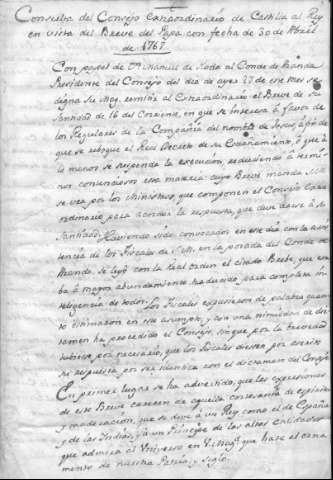 Consulta del Consejo Extraordinario de Castilla al Rey
en vista del Breve del Papa con fecha de 30 de Abril
de 1767
Con papel de Dn Manuel de Roda al Conde de Aranda
Presidente del Consejo del dia de ayer 29 de este mes se
digna Su Mag. remitir al Extraordinario el Breve de su
Santidad de 16 del corriente, en que se interesa á favor de
los Regulares de la Compañia del nombre de Jesus, á fin de
que se revoque el Real Decreto de su Estrañamiento, ó que á
lo menos se suspenda la execucion, reduciendo á termi-
nos contenciosos esta materia: cuyo Breve manda S.M.
se vea por los Ministros, que componen el Consejo Extra-
ordinario para acordar la respuesta, que deve darse á su
Santidad. Haviendo sido convocados en este dia con la asis-
tencia de los Fiscales de S.M. en la posada del Conde de
Aranda, se leyó con la Real orden el citado Breve, que esta-
ba traducido para completa in-
teligencia de todos. Los Fiscales expusieron de palabra quan-
to estimaron en este asunto; y con una uniformidad de dic-
tamen ha procedido el Consejo, sin que por la brevedad
tubiese por necesario, que los Fiscales diesen por escrito
su respuesta, por ser identica con el dictamen del Consejo.
En primer lugar se ha advertido, que las expresiones
de este Breve carecen de aquella cortesania de espiritu
y moderacion, que se deve á un Rey como el de España
y de las Indias, y á un Principe de las altas calidades
que admira el Universo en V. Mag. y que hace el orna-
mento de nuestra Patria y siglo.